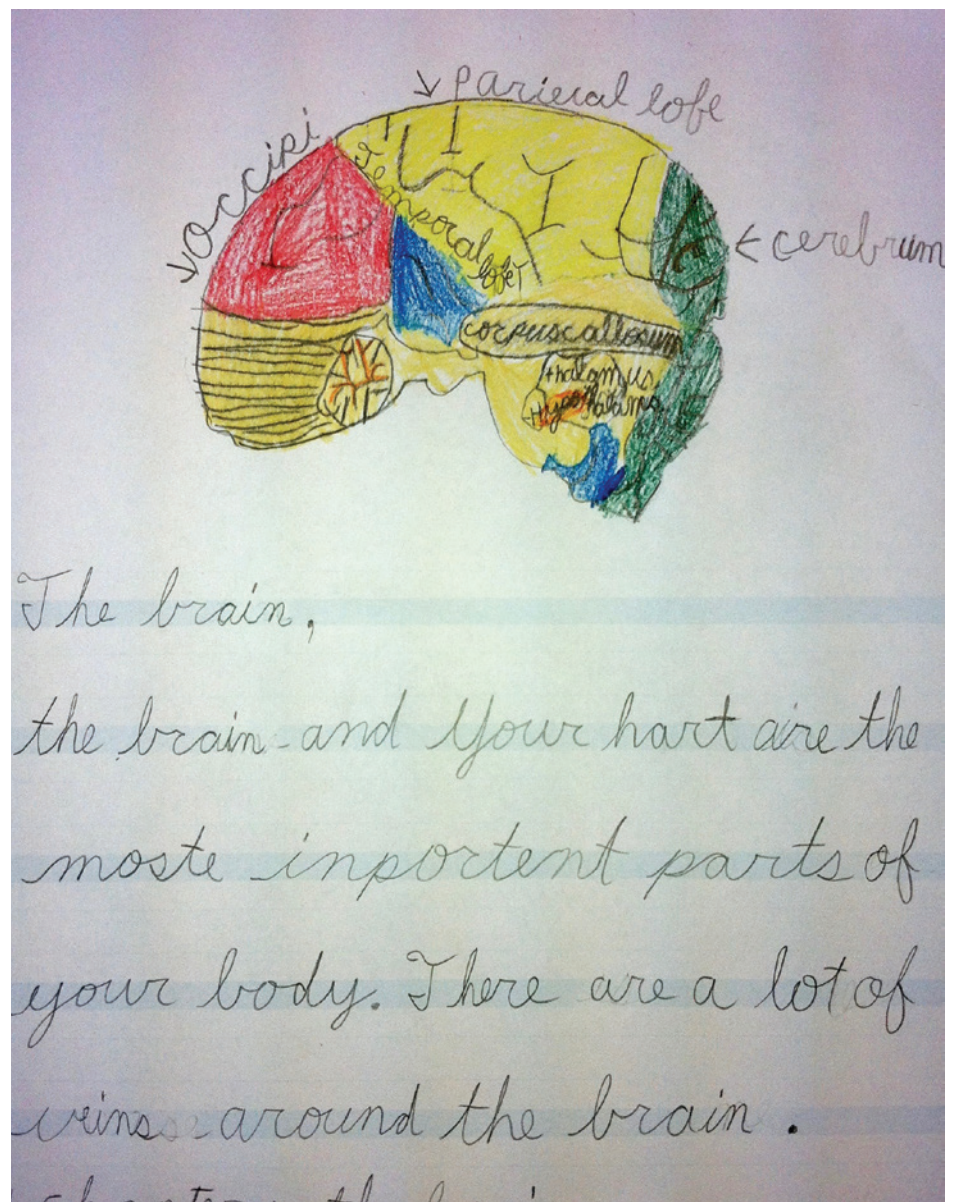 parieual lobe
occipi
temporal
lobe
cerebrum
corpuscallosum
thalamus
Hypothalamus
The brain,
the brain and Your hart are the
moste inportent parts of
your body. There are a lot of
veins around the brain.